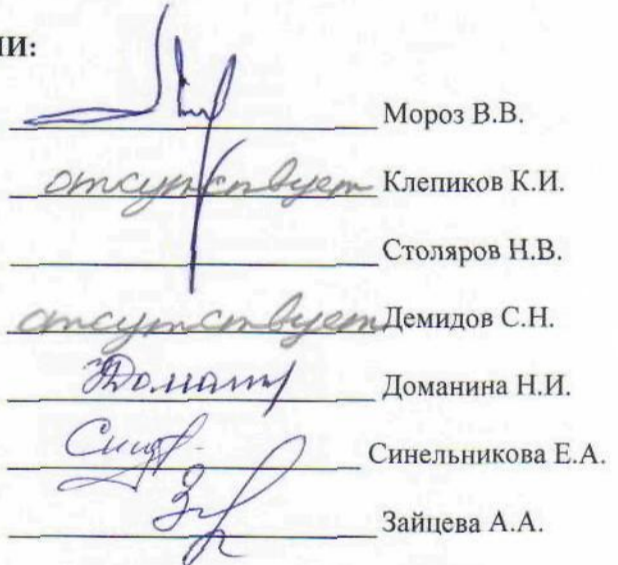 ИИ:
Мороз В.В.
отсутствует Клепиков К.И.
Столяров Н.В.
отсутствует Демидов С.Н.
Доманина Н.И.
Синельникова Е.А.
Зайцева А.А.